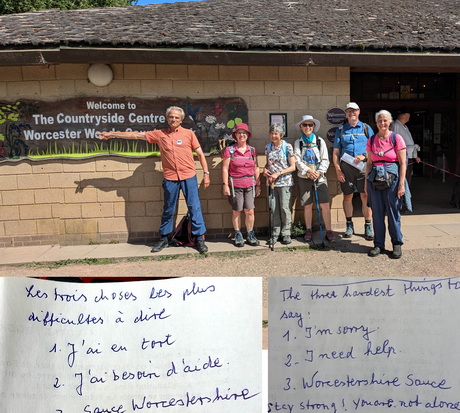 Welcome to
The Countryside Centre
Worcester Woods
Les trois choses les plus
difficultes à dire
1. J'ai eu tort
2. J'ai besoin d'aide.
3. Sauce Worcestershire
The three hardest things to
say:
1. I'm sorry.
2. I need help.
3. Worcestershire Sauce
Stay strong! You are not alone